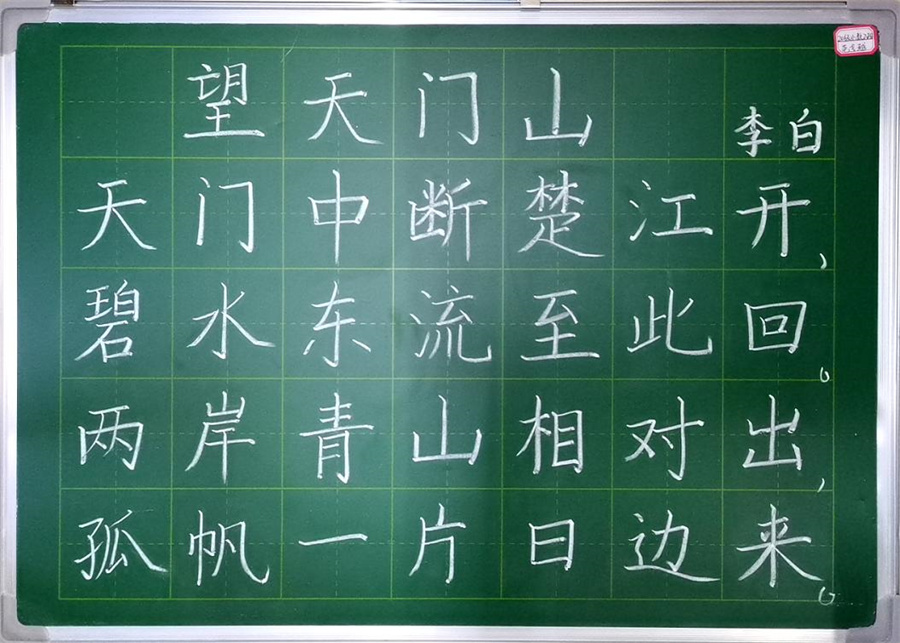 望天门山
李白
天门中断楚江开，
碧水东流至此回。
两岸青山相对出，
孤帆一片日边来。